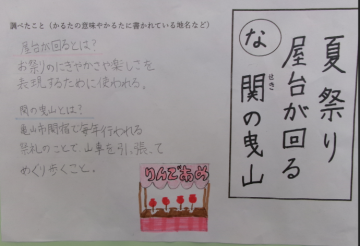 調べたこと（かるたの意味やかるたに書かれている地名など）
屋台が回るとは？
お祭りのにぎやかさや楽しさを
表現するために使われる。
関の曳山とは？
亀山市関宿で毎年行われる
祭礼のことで、山車を引、張って
めぐり歩くこと。
りんごあめ
夏祭り
屋台が回る
な
関の曳山
せき